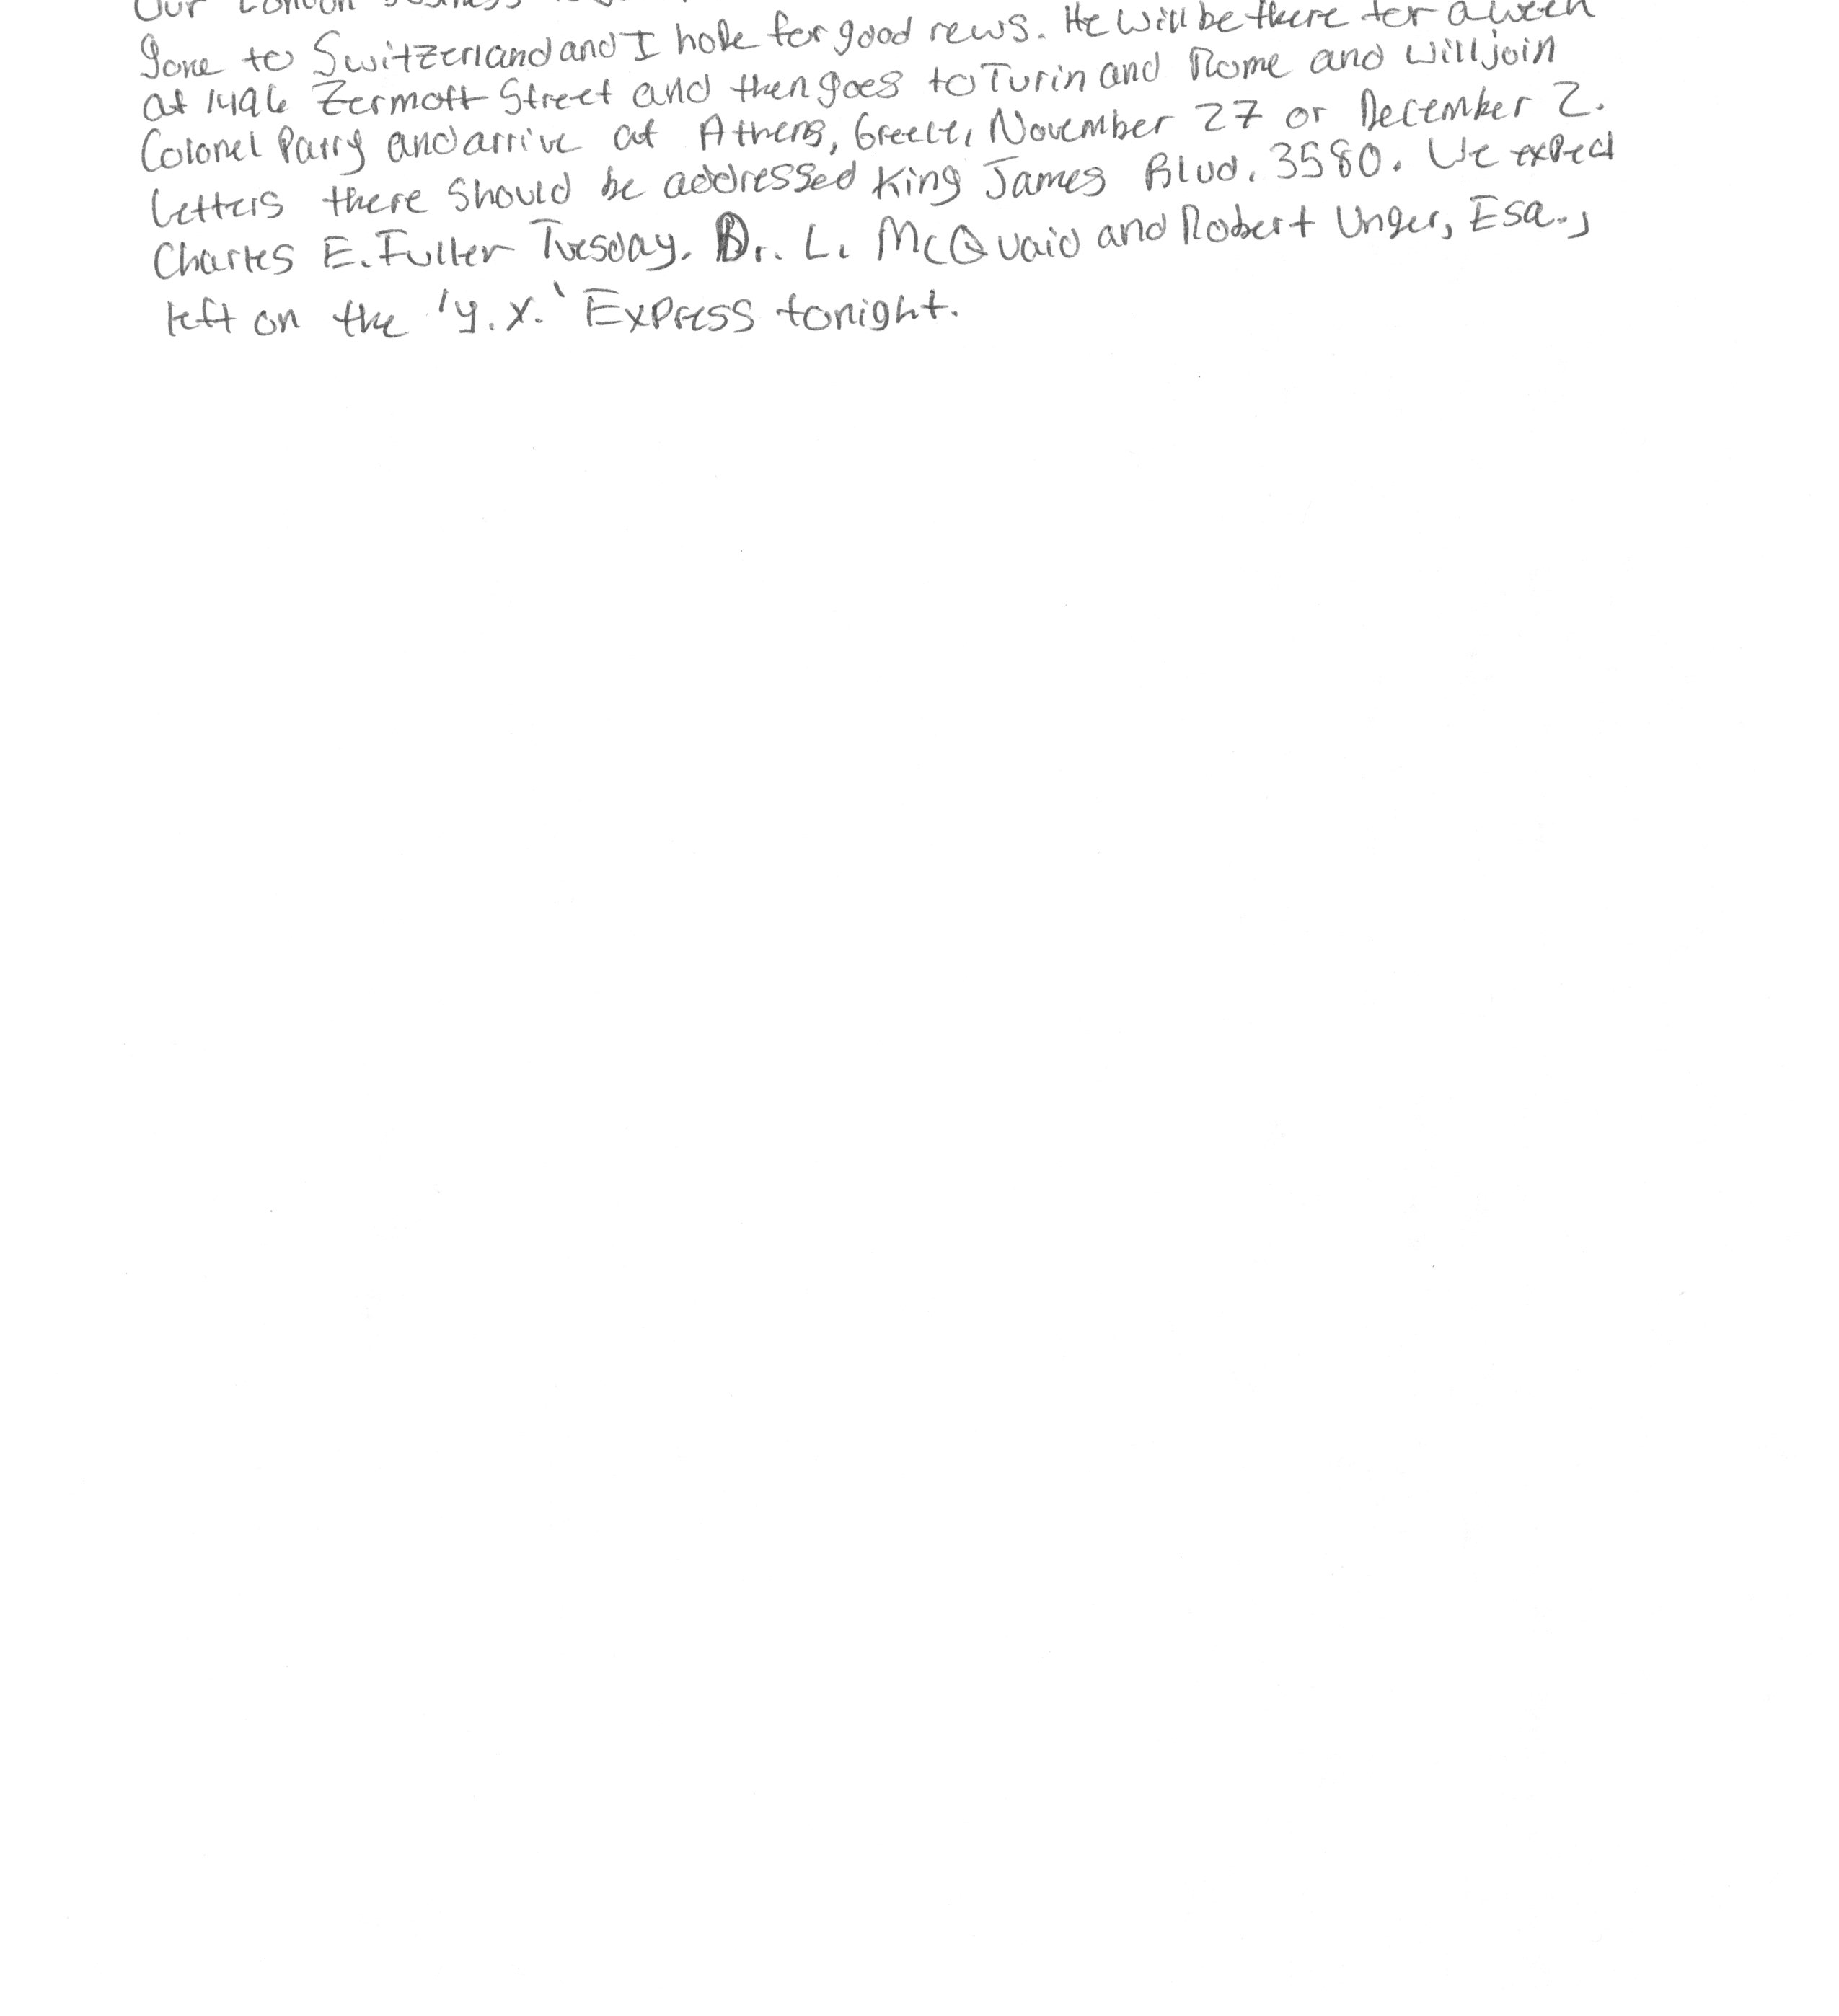 Our London business
gone to Switzerland and I hope for good news. He will be there for a week
at 1496 Zermott Street and then goes to Turin and Rome and will join
Colonel Parry and arrive at Athens, Greece, November 27 or December 2.
Letters there should be addressed King James Blvd. 3580. We expect
Charles E. Fuller Tuesday. Dr. L. McQuaid and Robert Unger, Esq.,
left on the 'Y.X.' Express tonight.